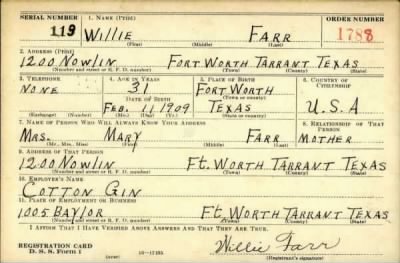 SERIAL NUMBER 1. NAME (Print) ORDER NUMBER
119 WILLIE FARR 1788
(First) (Middle) (Last)
2. ADDRESS (Print)
1200 NOWLIN FORT WORTH TARRANT TEXAS
(Number and street or R. F. D. number) (Town) (County) (State)
3. TELEPHONE 4. AGE IN YEARS 5. PLACE OF BIRTH 6. COUNTRY OF CITIZENSHIP
NONE 31 FORT WORTH
DATE OF BIRTH (Town or county)
FEB. 11 1909 TEXAS U.S.A
(Exchange) (Number) (Mo.) (Day) (Yr.) (State or country)
7. NAME OF PERSON WHO WILL ALWAYS KNOW YOUR ADDRESS 8. RELATIONSHIP OF THAT PERSON
MRS. MARY FARR MOTHER
(Mr., Mrs., Miss) (First) (Middle) (Last)
9. ADDRESS OF THAT PERSON
1200 NOWLIN FT. WORTH TARRANT TEXAS
(Number and street or R. F. D. number) (Town) (County) (State)
10. EMPLOYER'S NAME
COTTON GIN
11. PLACE OF EMPLOYMENT OR BUSINESS
1005 BAYLOR FT. WORTH TARRANT TEXAS
(Number and street or R. F. D. number) (Town) (County) (State)
I AFFIRM THAT I HAVE VERIFIED ABOVE ANSWERS AND THAT THEY ARE TRUE.
REGISTRATION CARD Willie Farr
D. S. S. Form 1 (over) (Registrant's signature)